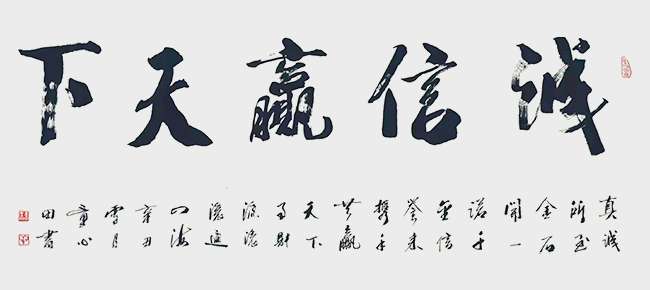 诚信赢天下
真诚
所至
金石
開一
諾千
金信
誉来
携手
共赢
天下
财
源滚
滚
四海
辛丑
雪月
童心
田書